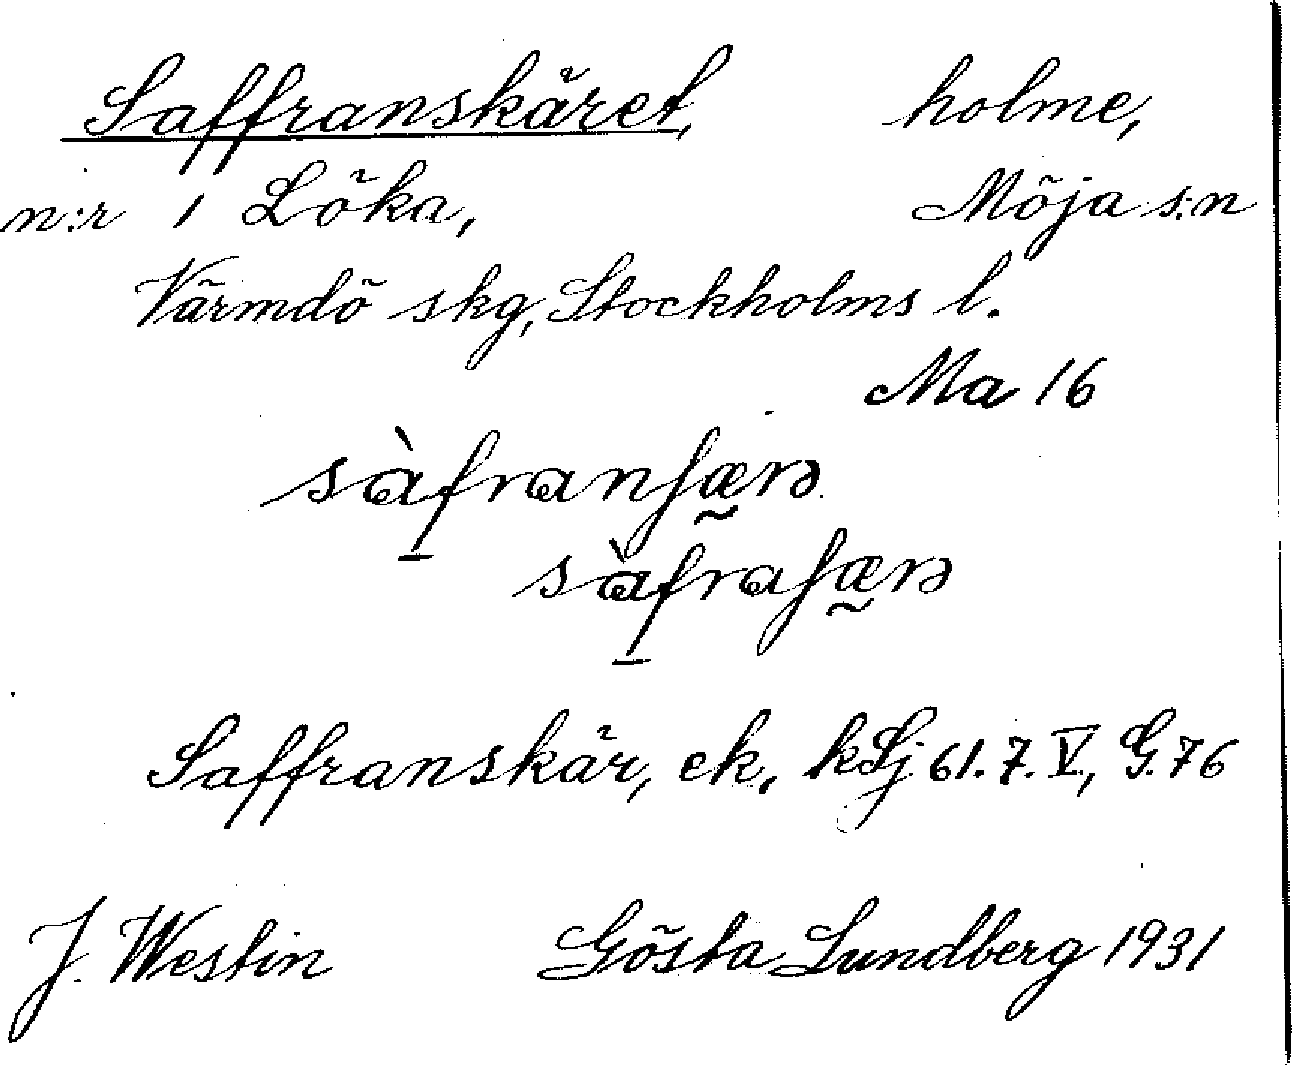 Saffranskäret, holme,
n:r 1 Löka, Möja s:n
Värmdö skg, Stockholms l.
Ma 16
sàfranʃærə
sàfraʃærə
Saffranskär, ek, kLj 61.7.V, G.76
J. Westin Gösta Lundberg 1931